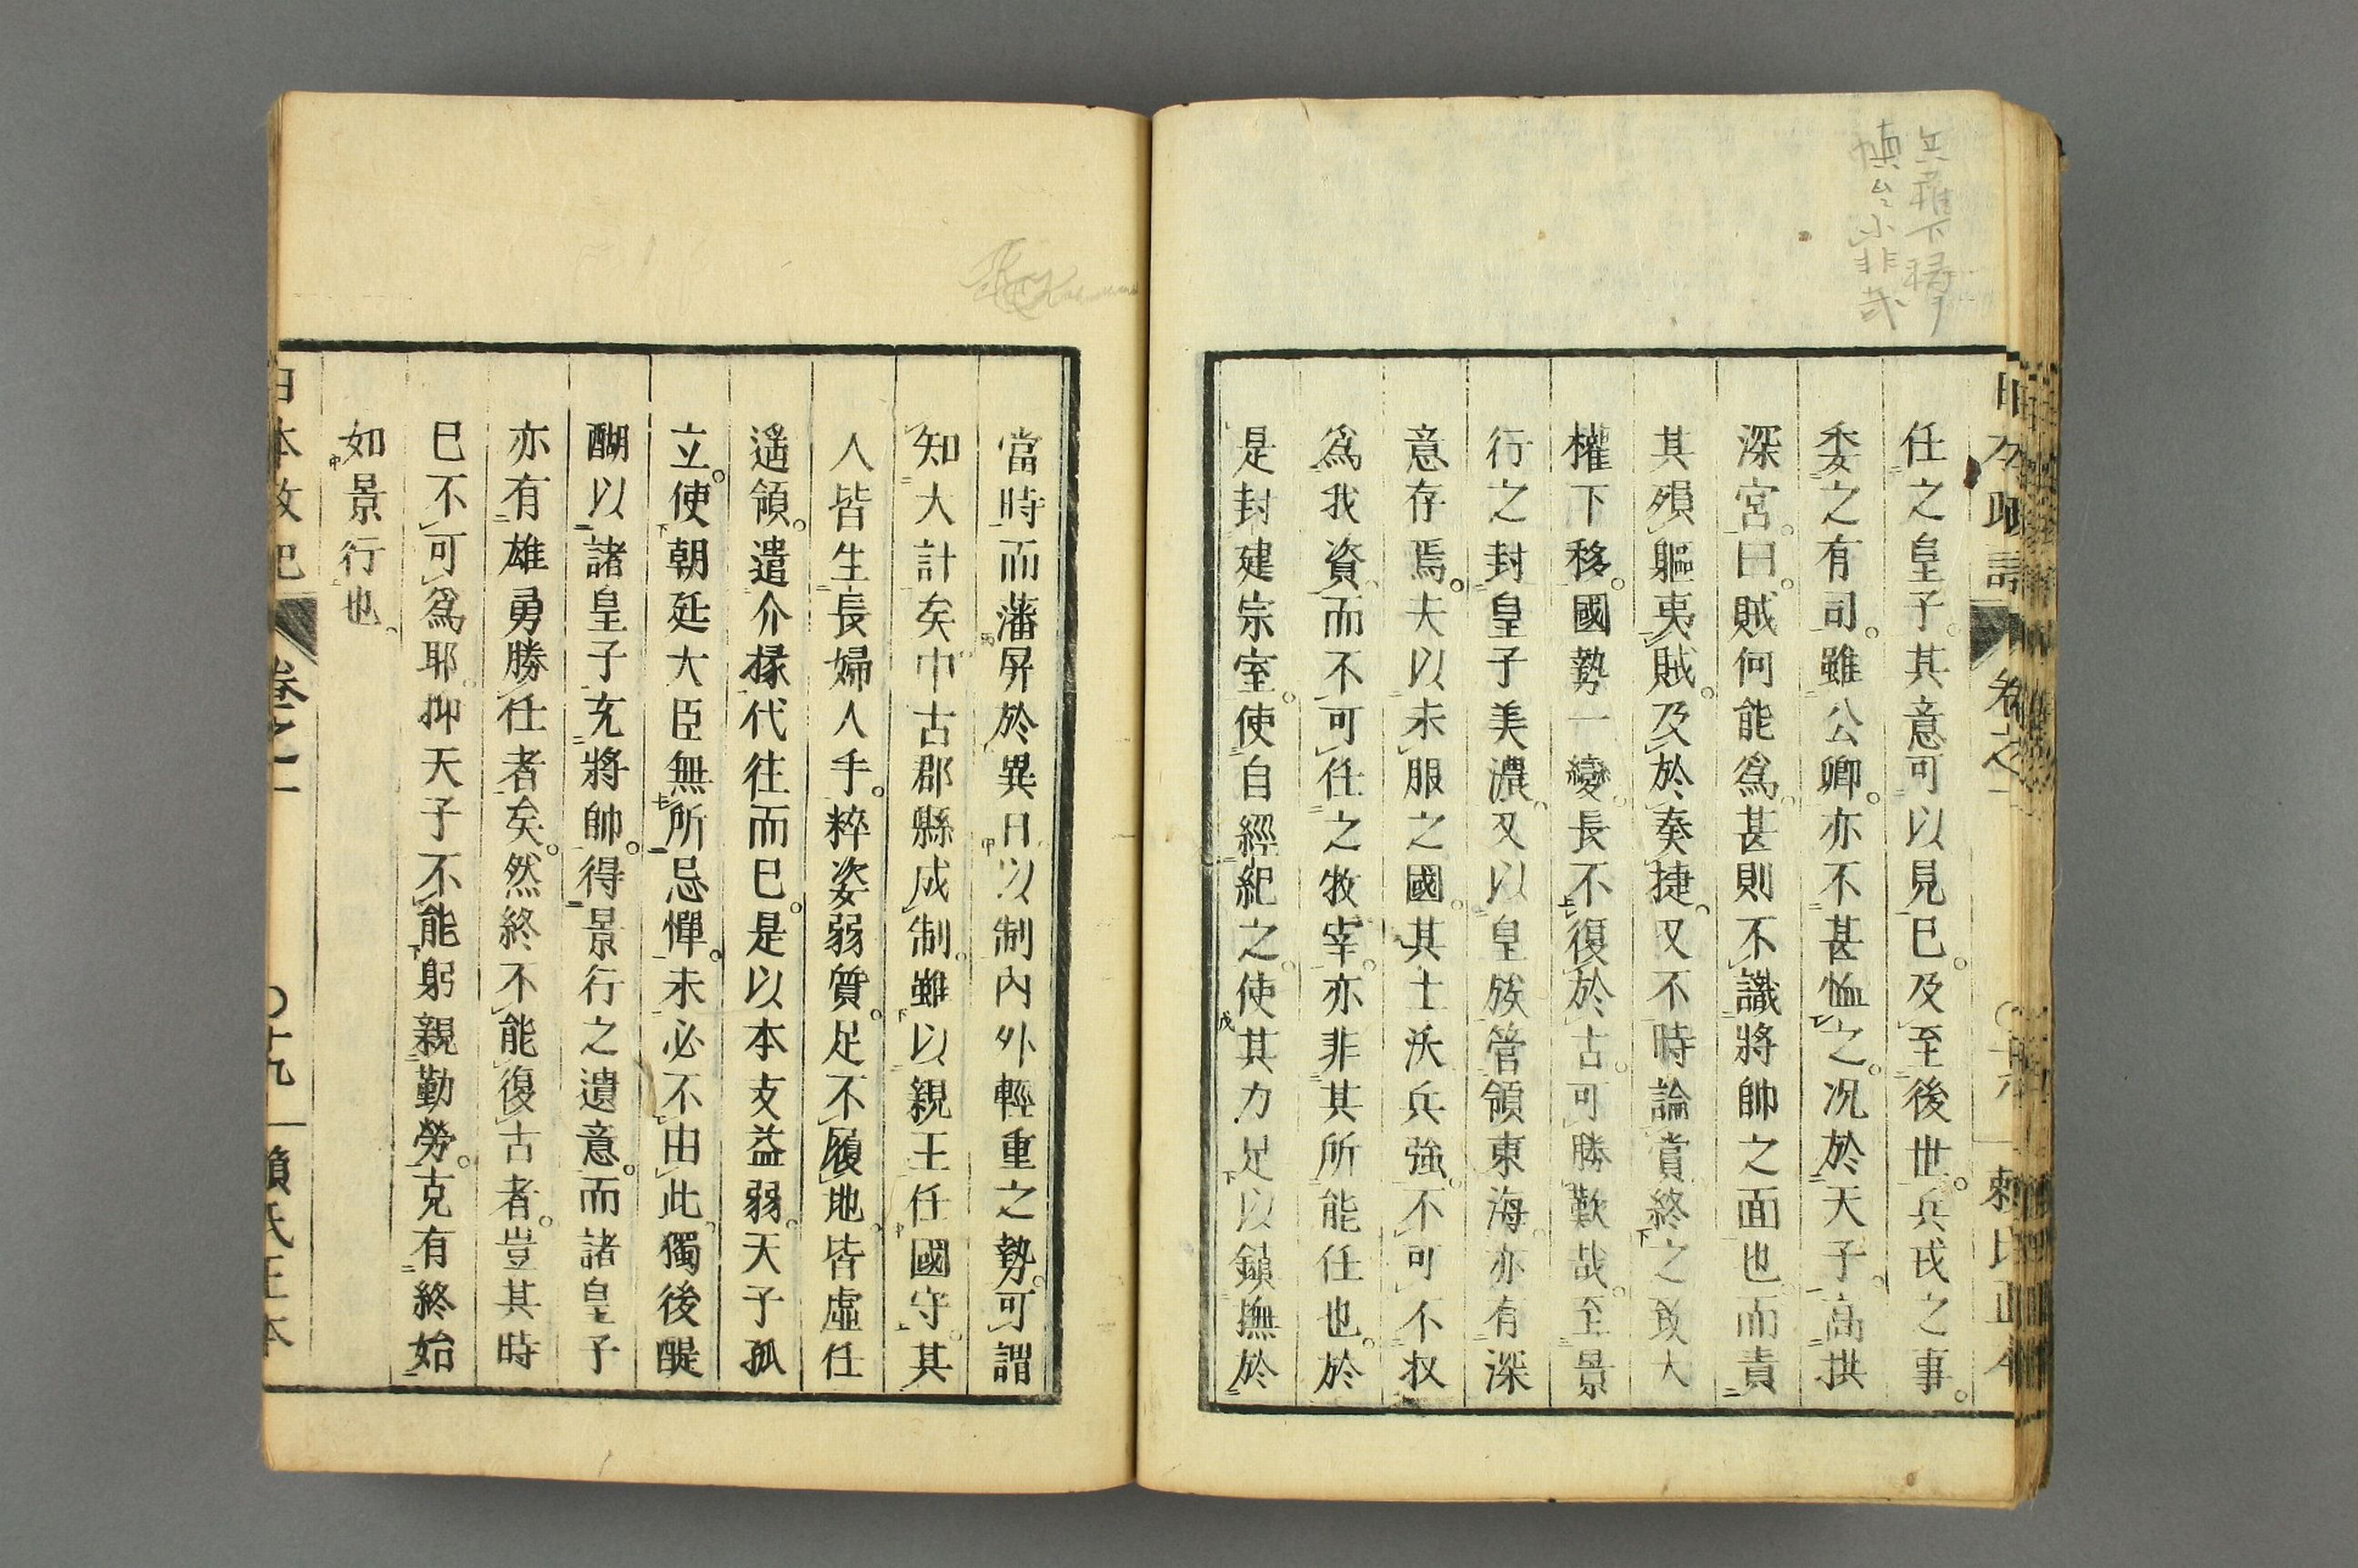 任之皇子。其意可以見已。及至後世。兵戎之事。
委之有司。雖公卿。亦不甚恤之。況於天子。高拱
深宮。曰。賊何能爲。甚則不識將帥之面也。而責
其殞軀夷賊。及於奏捷。又不時論賞。終之致大
權下移。國勢一變。長不復於古。可勝歎哉。至景
行之封皇子美濃。又以皇族管領東海。亦有深
意存焉。夫以未服之國。其士沃兵強。不可不收
爲我資。而不可任之牧宰。亦非其所能任也。於
是封建宗室。使自經紀之。使其力足以鎭撫於
當時。而藩屏於異日。以制內外輕重之勢。可謂
知大計矣。中古郡縣成制。雖以親王任國守。其
人皆生長婦人手。粹姿弱質。足不履地。皆虛任
遙領。遣介掾代往而已。是以本支益弱。天子孤
立。使朝廷大臣無所忌憚。未必不由此。獨後醍
醐以諸皇子充將帥。得景行之遺意。而諸皇子
亦有雄勇勝任者矣。然終不能復古者。豈其時
已不可爲耶。抑天子不能躬親勤勞。克有終始
如景行也。
日本政記 卷之一 ○十九 賴氏正本